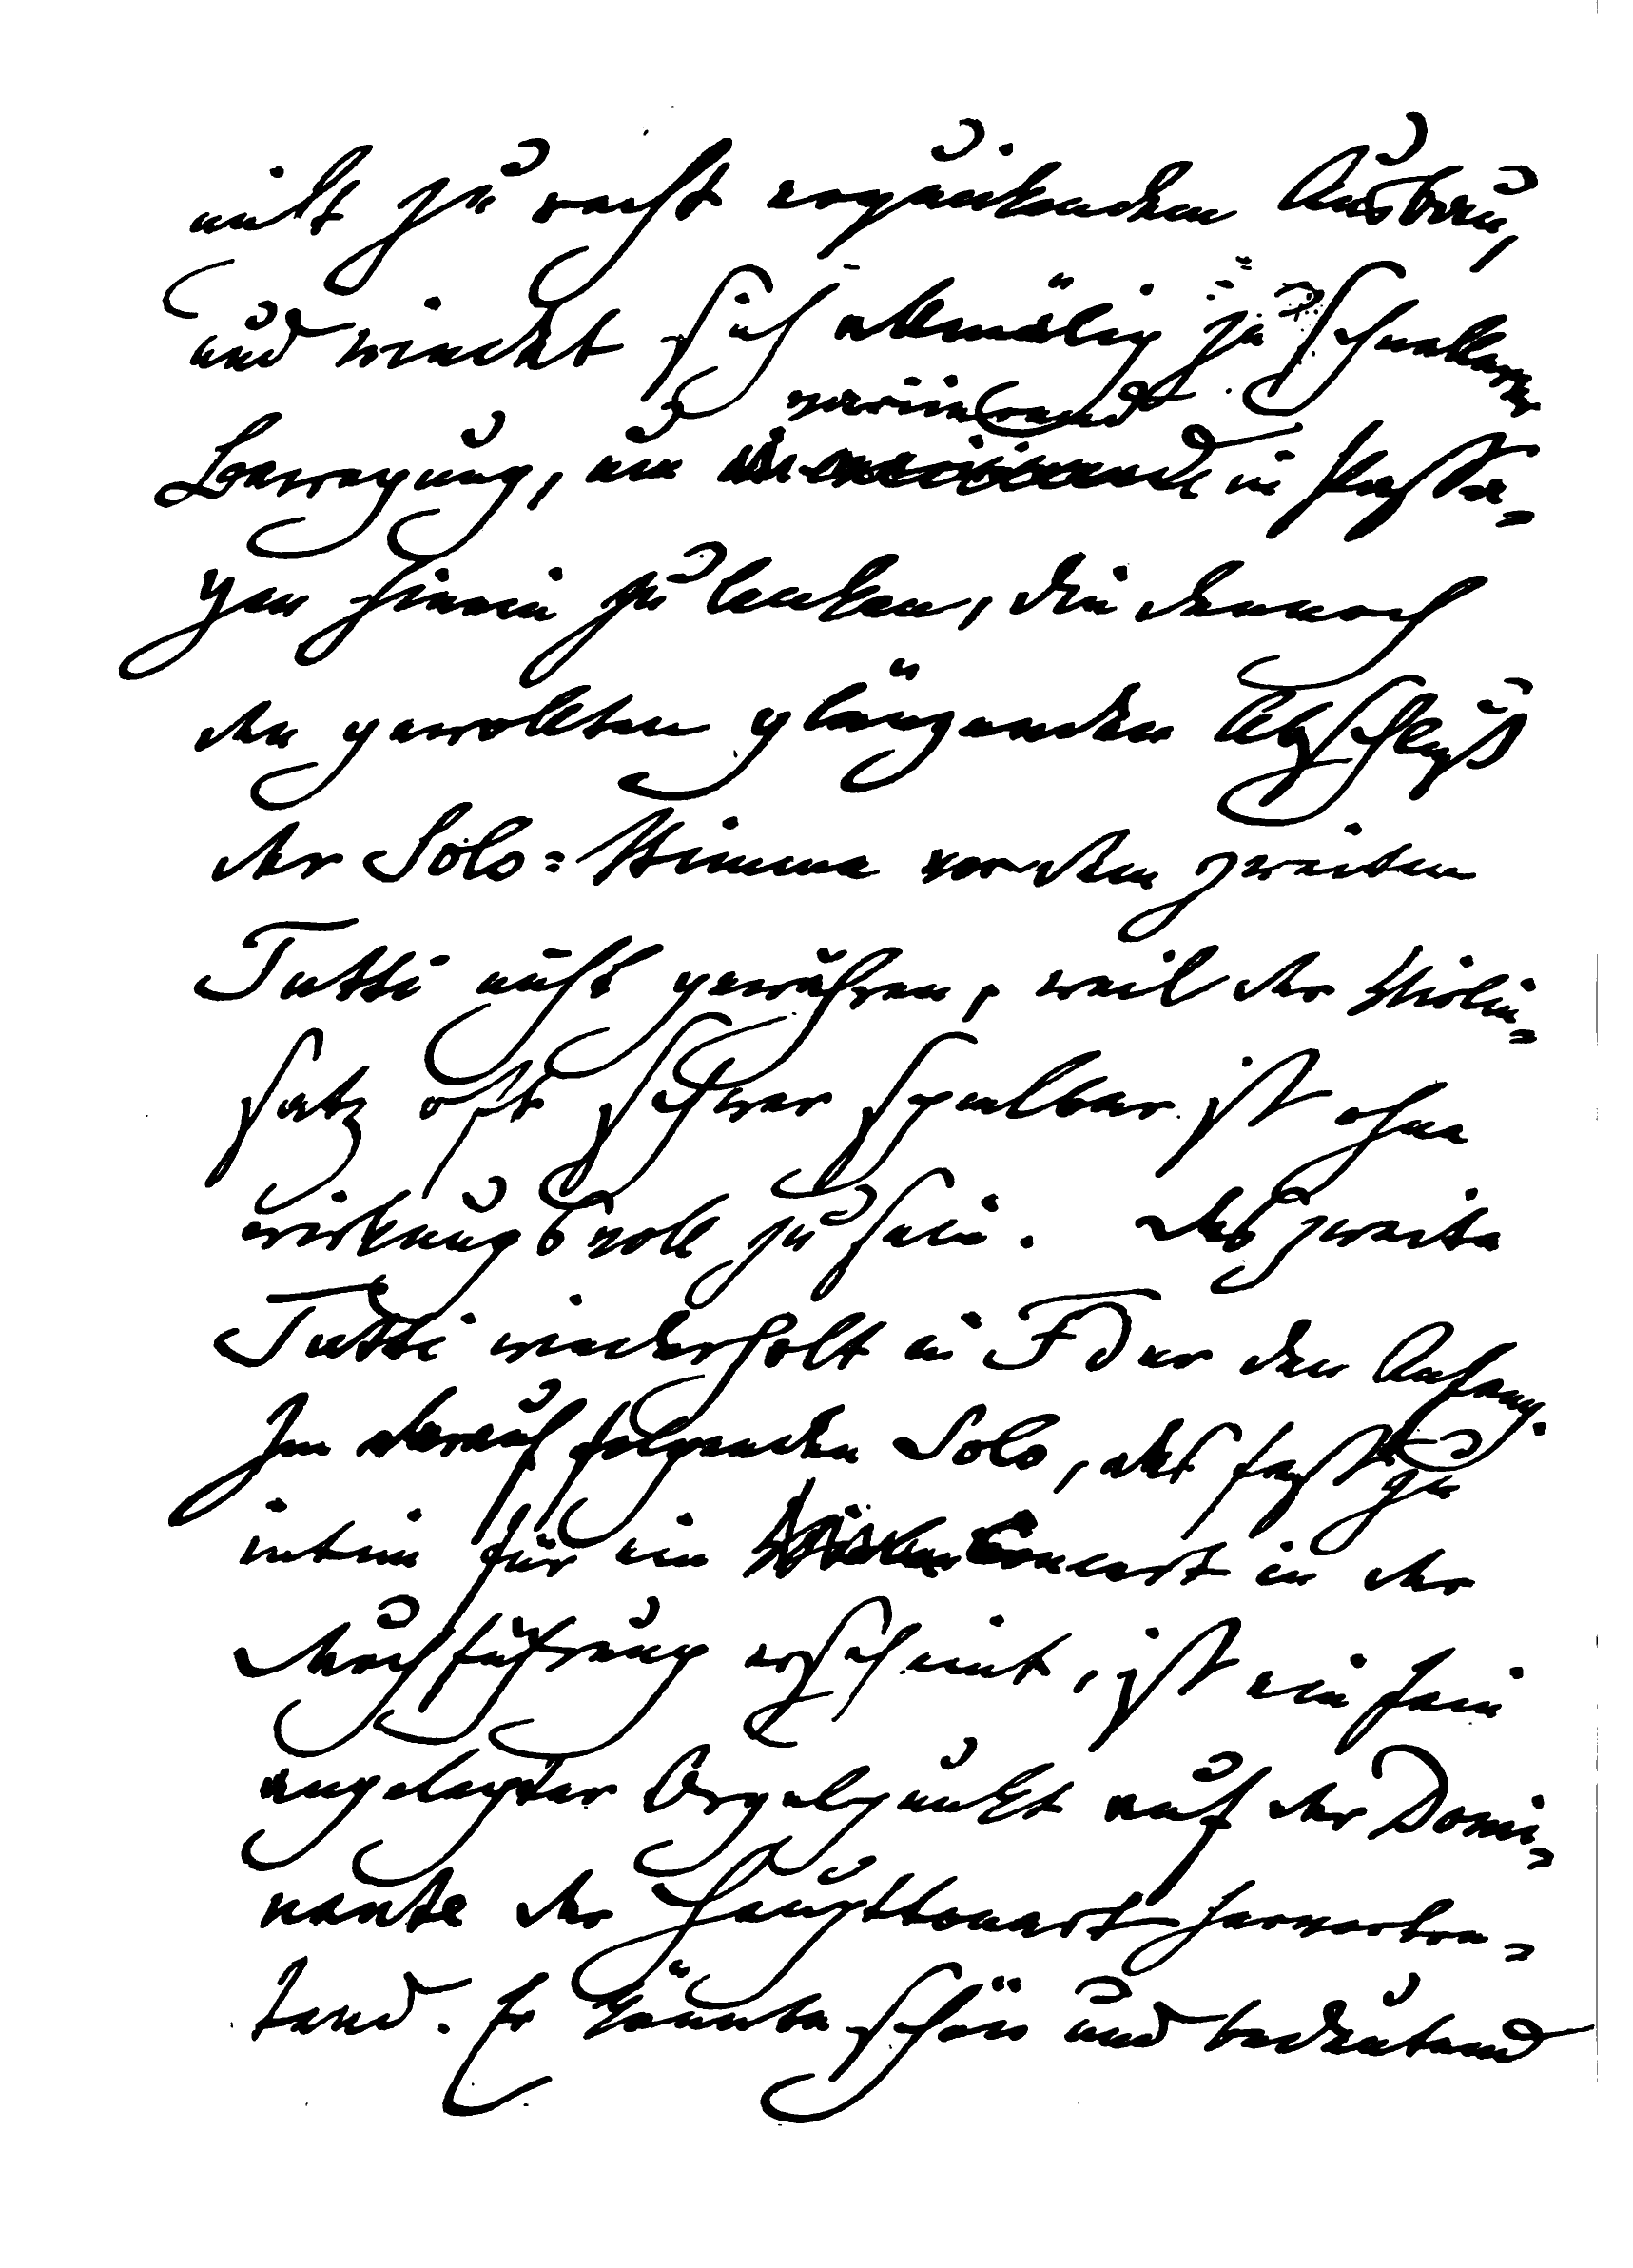 nicht zu recht erquickenden Ausbau,
und windet sich allmälig zu schnellerer
Bewegung, um verirrend in Passa-
gen hinein zu lenken, die dennoch
den gewollten glänzenden Abschluß
der Solo-Stimme vor dem zweiten
Tutti nicht gewähren, weil der Violin-
satz oft schwer spielbar ist ohne
wirkungsvoll zu sein. Das zweite
Tutti wiederholt in F dur den Anfang.
Im darauf folgenden Solo, das fast zu
intim für ein Concert in der
Durchführung erscheint, ist ein fein
angelegter Orgelpunkt auf der Domi-
nante der Haupttonart hervortre-
tend. Er könnte schön und bedeutend